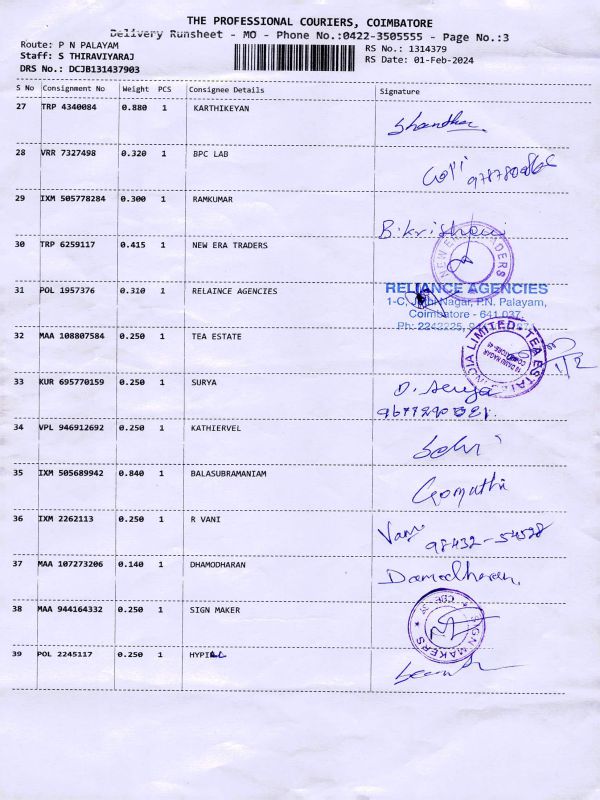 THE PROFESSIONAL COURIERS, COIMBATORE
Delivery Runsheet - MO - Phone No.:0422-3505555 - Page No.:3
Route: P N PALAYAM
RS No.: 1314379
Staff: S THIRAVIYARAJ
RS Date: 01-Feb-2024
DRS No.: DCJB131437903
S No Consignment No Weight PCS Consignee Details Signature
27 TRP 4340084 0.880 1 KARTHIKEYAN
28 VRR 7327498 0.320 1 BPC LAB
29 IXM 505778284 0.300 1 RAMKUMAR
30 TRP 6259117 0.415 1 NEW ERA TRADERS
31 POL 1957376 0.310 1 RELAINCE AGENCIES
RELIANCE AGENCIES
P.N. Palayam,
Coimbatore - 641 037.
32 MAA 108807584 0.250 1 TEA ESTATE
1/2
33 KUR 695770159 0.250 1 SURYA
34 VPL 946912692 0.250 1 KATHIERVEL
35 IXM 505689942 0.840 1 BALASUBRAMANIAM Gomathi
36 IXM 2262113 0.250 1 R VANI Vani 98432-54528
37 MAA 107273206 0.140 1 DHAMODHARAN Damodharan.
38 MAA 944164332 0.250 1 SIGN MAKER
SIGN MAKERS
39 POL 2245117 0.250 1